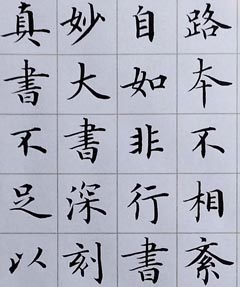 路本不相紊
自如非行書
妙大書深刻
真書不足以